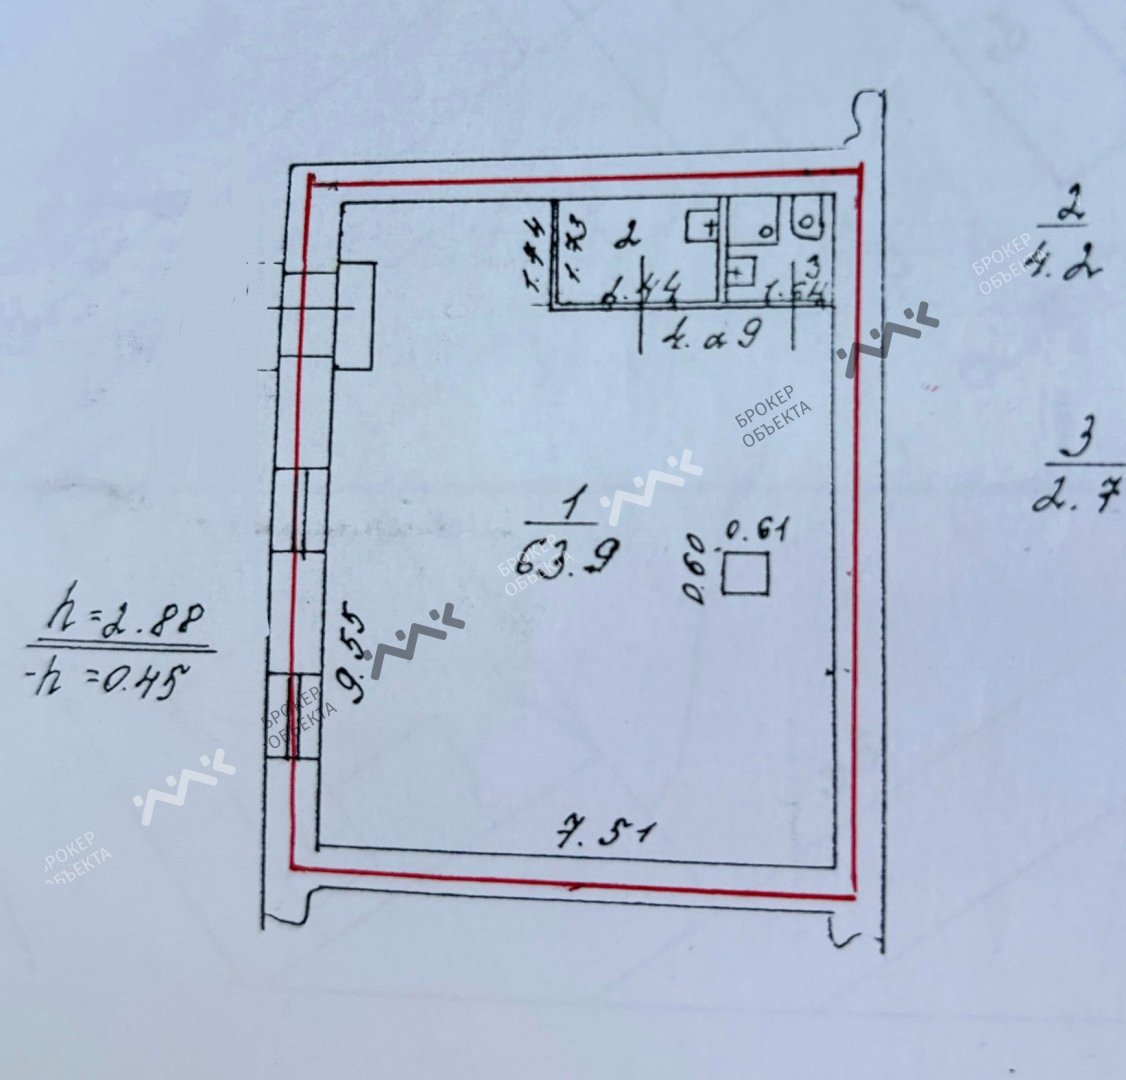 2
4.2
2
3
2.44
1.54
4.09
БРОКЕР
ОБЪЕКТА
БРОКЕР
ОБЪЕКТА
3
2.7
1
63.9
0.61
0.60
БРОКЕР
ОБЪЕКТА
h=2.88
-h=0.45
9.55
БРОКЕР
ОБЪЕКТА
7.51
БРОКЕР
ОБЪЕКТА